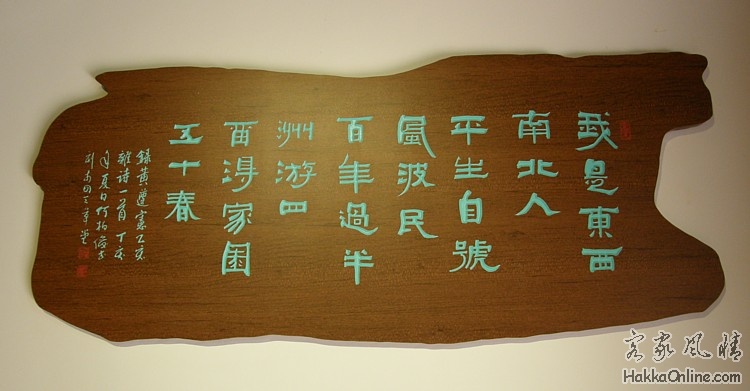 我是東西
南北人
平生自號
風波民
百年過半
洲游四
留得家園
五十春
錄黃遵憲己亥
雜詩一首 丁亥
年夏日
客家風情
HakkaOnline.com